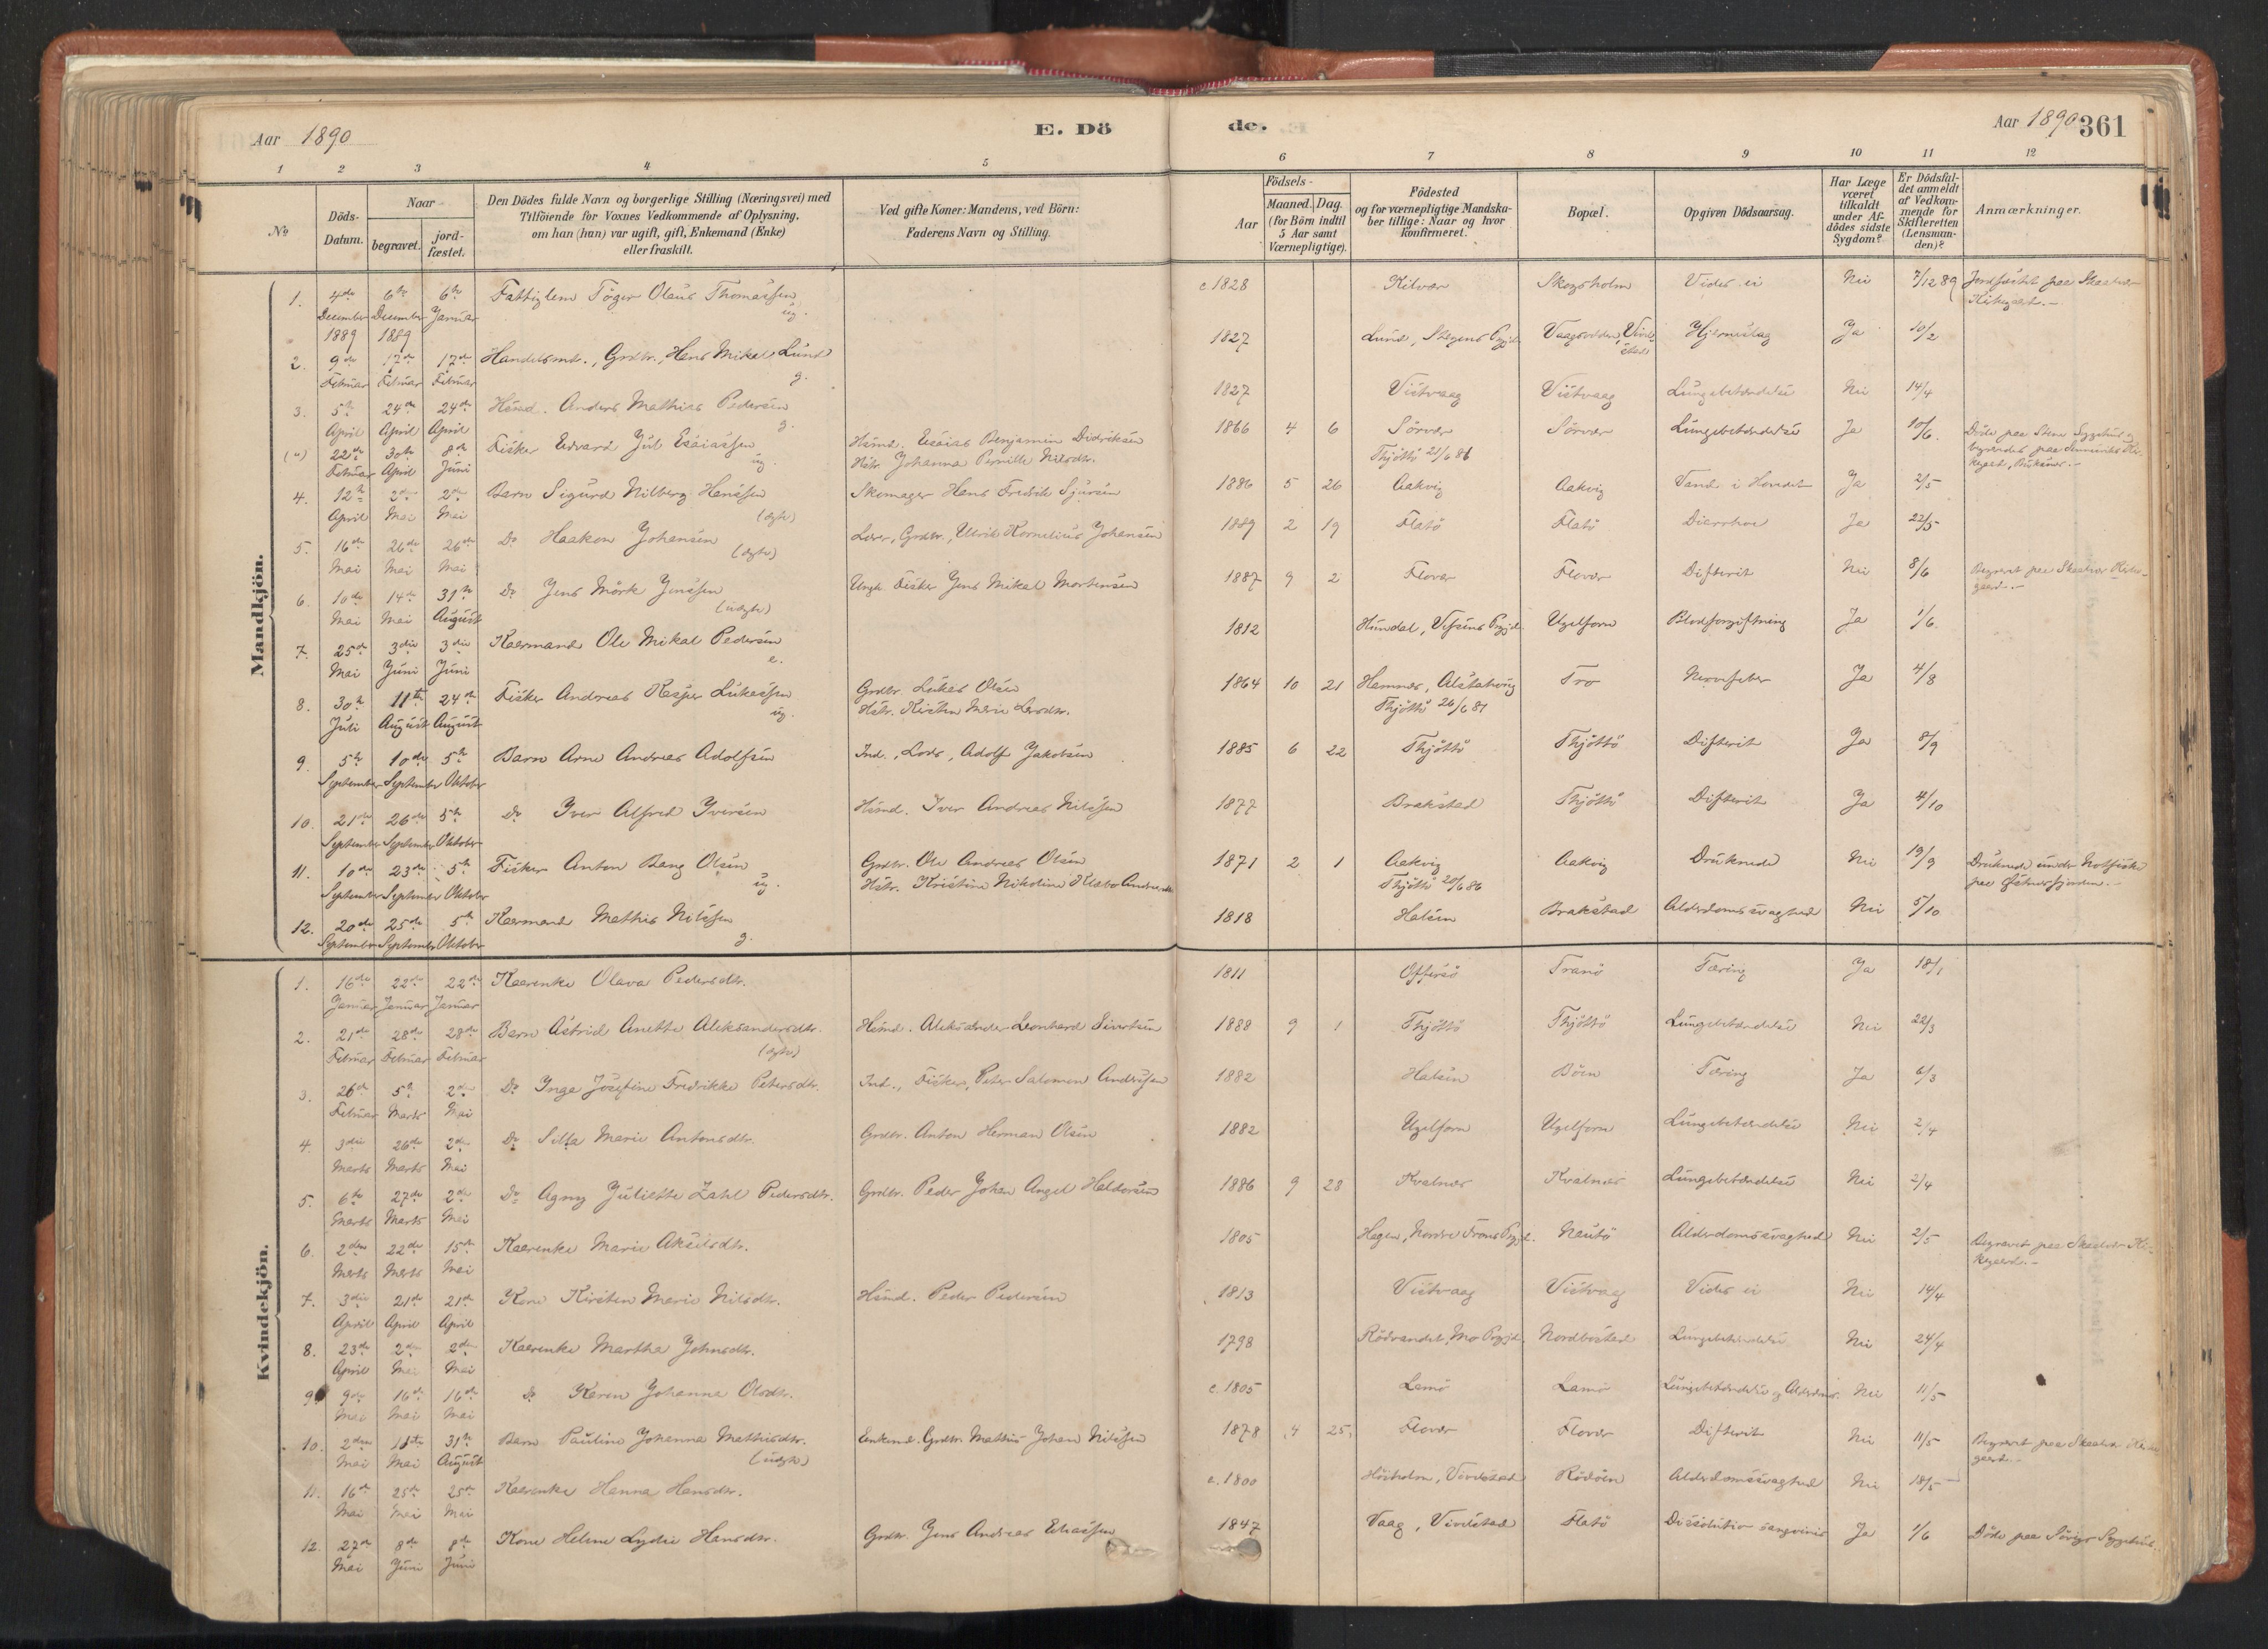 Aar 1890 E. Dö
de. Aar 1890 361
1 2 3 4 5
6 7 8 9 10 11 12
No
Döds-
Datum.
Naar
begravet. jord-
fæstet.
Den Dödes fulde Navn og borgerlige Stilling (Næringsvei) med
Tilföiende for Voxnes Vedkommende af Oplysning,
om han (hun) var ugift, gift, Enkemand (Enke)
eller fraskilt.
Ved gifte Koner: Mandens, ved Börn:
Faderens Navn og Stilling.
Födsels-
Aar
Maaned. Dag.
(for Börn indtil
5 Aar samt
Værnepligtige).
Födested
og for værnepligtige Mandska-
ber tillige: Naar og hvor
konfirmeret.
Bopæl.
Opgiven Dödsaarsag.
Har Læge
været
tilkaldt
under Af-
dödes sidste
Sygdom?
Er Dödsfal-
det anmeldt
af Vedkom-
mende for
Skifteretten
(Lensman-
den)?
Anmærkninger.
Mandkjön.
1. 4de 6te 6te Fattiglem Töger Olaus Thomassen c 1828 Kilvær Skogsholm Vides ei Nei 7/12 89 Jordfæstet paa Skaalvær
December December Januar ug. Kirkegaard.-
1889 1889
2. 9de 17de 17de Handelsmd., Grdbr., Hans Mikal Lund 1827 Lund, Stegens Prgjd. Vaagsodden, Vivel- Hjerneslag Ja 10/2
Februar Februar Februar g. stad
3. 5te 24de 24de Hsmd. Anders Mathias Pedersen 1827 Vistvaag Vistvaag Lungebetændelse Nei 14/4
April April April g.
(") 22de 30te 8de Fisker Edvard Jul Esaiassen Hsmd. Esaias Benjamin Didriksen 1866 4 6 Sörvær Sörvær Lungebetændelse Ja 10/6. Döde paa Stene Sygehus,
Februar April Juni ug. Hstr. Johanna Pernille Nilsdtr. Thjöttö 21/6 86 begravedes paa
4. 12te 2den 2den Barn Sigurd Nilberg Hanssen Skomager Hans Fredrik Sjursen 1886 5 26 Aakvig Aakvig Vand i Hovedet Ja 2/5
April Mai Mai (ægte)
5. 16de 26de 26de Do Haakon Johansen Lærer, Grdbr., Ulrik Kornelius Johansen 1889 2 19 Flatö Flatö Diarrhoe Ja 22/5
Mai Mai Mai (ægte)
6. 10de 14de 31te Do Jens Mörk Jenssen Ungk. Fisker Jens Mikal Mortensen 1887 9 2 Flovær Flovær Difterit Nei 8/6 Begravet paa Skaalvær Kirke-
Mai Mai August (uægte) gaard.-
7. 25de 3die 3die Kaarmand Ole Mikal Pedersen 1812 Hundal, Vefsens Prgjd. Ugelforn Blodforgiftning Ja 1/6
Mai Juni Juni e.
8. 30te 11te 24de Fisker Andreas Kasper Lukassen Grdbr. Lukas Olsen 1864 10 21 Hamnes, Alstahaug Tro Nervefeber Ja 4/8
Juli August August ug. Hstr. Kirsten Marie Larsdtr. Thjöttö 26/6 81
9. 5te 10de 5te Barn Arne Andreas Adolfsen Ind., Lods, Adolf Jakobsen 1885 6 22 Thjöttö Thjöttö Difterit Ja 8/9
September September Oktober
10. 21de 26de 5te Do Iver Alfred Iversen Hsmd. Iver Andreas Nilssen 1877 Brakstad Thjöttö Difterit Ja 4/10
September September Oktober
11. 10de 23de 5te Fisker Anton Bang Olsen Grdbr. Ole Andreas Olsen 1871 2 1 Aakvig Aakvig Druknede Nei 19/9 Druknede under Notfiske
September September Oktober ug. Hstr. Kristine Nikoline Klæbo Andreasdtr. Thjöttö 20/6 86 paa
12. 20de 25de 5te Kaarmand Mathis Nilssen 1818 Halsen Brakstad Alderdomssvaghed Nei 5/10
September September Oktober g.
Kvindekjön.
1. 16de 22de 22de Kaarenke Olava Pedersdtr. 1811 Offersö Tranö Tæring Ja 18/1
Januar Januar Januar
2. 21de 28de 28de Barn Astrid Anette Aleksandersdtr. Hsmd. Aleksander Leonhard Sivertsen 1888 9 1 Thjöttö Thjöttö Lungebetændelse Nei 22/3
Februar Februar Februar (ægte)
3. 26de 5te 2den Do Inga Josefine Fredrikke Petersdtr. Ind., Fisker, Peter Salomon Andersen 1882 Halsen Böen Tæring Ja 6/3
Februar Marts Mai
4. 3die 26de 2den Do Silla Marie Antonsdtr. Grdbr. Anton Herman Olsen 1882 Ugelforn Ugelforn Lungebetændelse Nei 2/4
Marts Marts Mai
5. 6te 27de 2den Do Agny Juliette Zahl Pedersdtr. Grdbr. Peder Johan Angel Haldorsen 1886 9 28 Kvalnes Kvalnes Lungebetændelse Nei 2/4
Marts Marts Mai
6. 2den 22de 15de Kaarenke Marie Akselsdtr. 1805 Hagen, Nordre Frons Prgjd. Nautö Alderdomssvaghed Nei 2/5 Begravet paa Skaalvær Kir-
Marts Marts Mai kegaard.-
7. 3die 21de 21de Kone Kirsten Marie Nilsdtr. Hsmd. Peder Pedersen 1813 Vistvaag Vistvaag Vides ei Nei 14/4
April April April
8. 23de 2den 2den Kaarenke Martha Johnsdtr. 1798 Rödvandet, Mo Prgjd. Nordbostad Lungebetændelse Nei 24/4
April Mai Mai
9 9de 16de 16de Do Karen Johanna Olsdtr. c. 1805 Lamö Lamö Lungebetændelse og Alderdoms. Nei 11/5
Mai Mai Mai
10. 2den 11te 31te Barn Pauline Johanna Mathisdtr. Enkemd. Grdbr. Mathis Johan Nilssen 1878 4 25 Flovær Flovær Difterit Nei 11/5 Begravet paa Skaalvær Kirke-
Mai Mai August (uægte) gaard.-
11. 16de 25de 25de Kaarenke Hanna Hansdtr. c. 1800 Höiholm, Vivelstad Rödöen Alderdomssvaghed Nei 18/5
Mai Mai Mai
12. 27de 8de 8de Kone Helene Lydie Hansdtr. Grdbr. Jens Andreas Eliassen 1847 Vaag, Vivelstad Flatö Dissolutio sangvinis Ja 1/6 Döde paa Sövigs Sygehus.
Mai Juni Juni